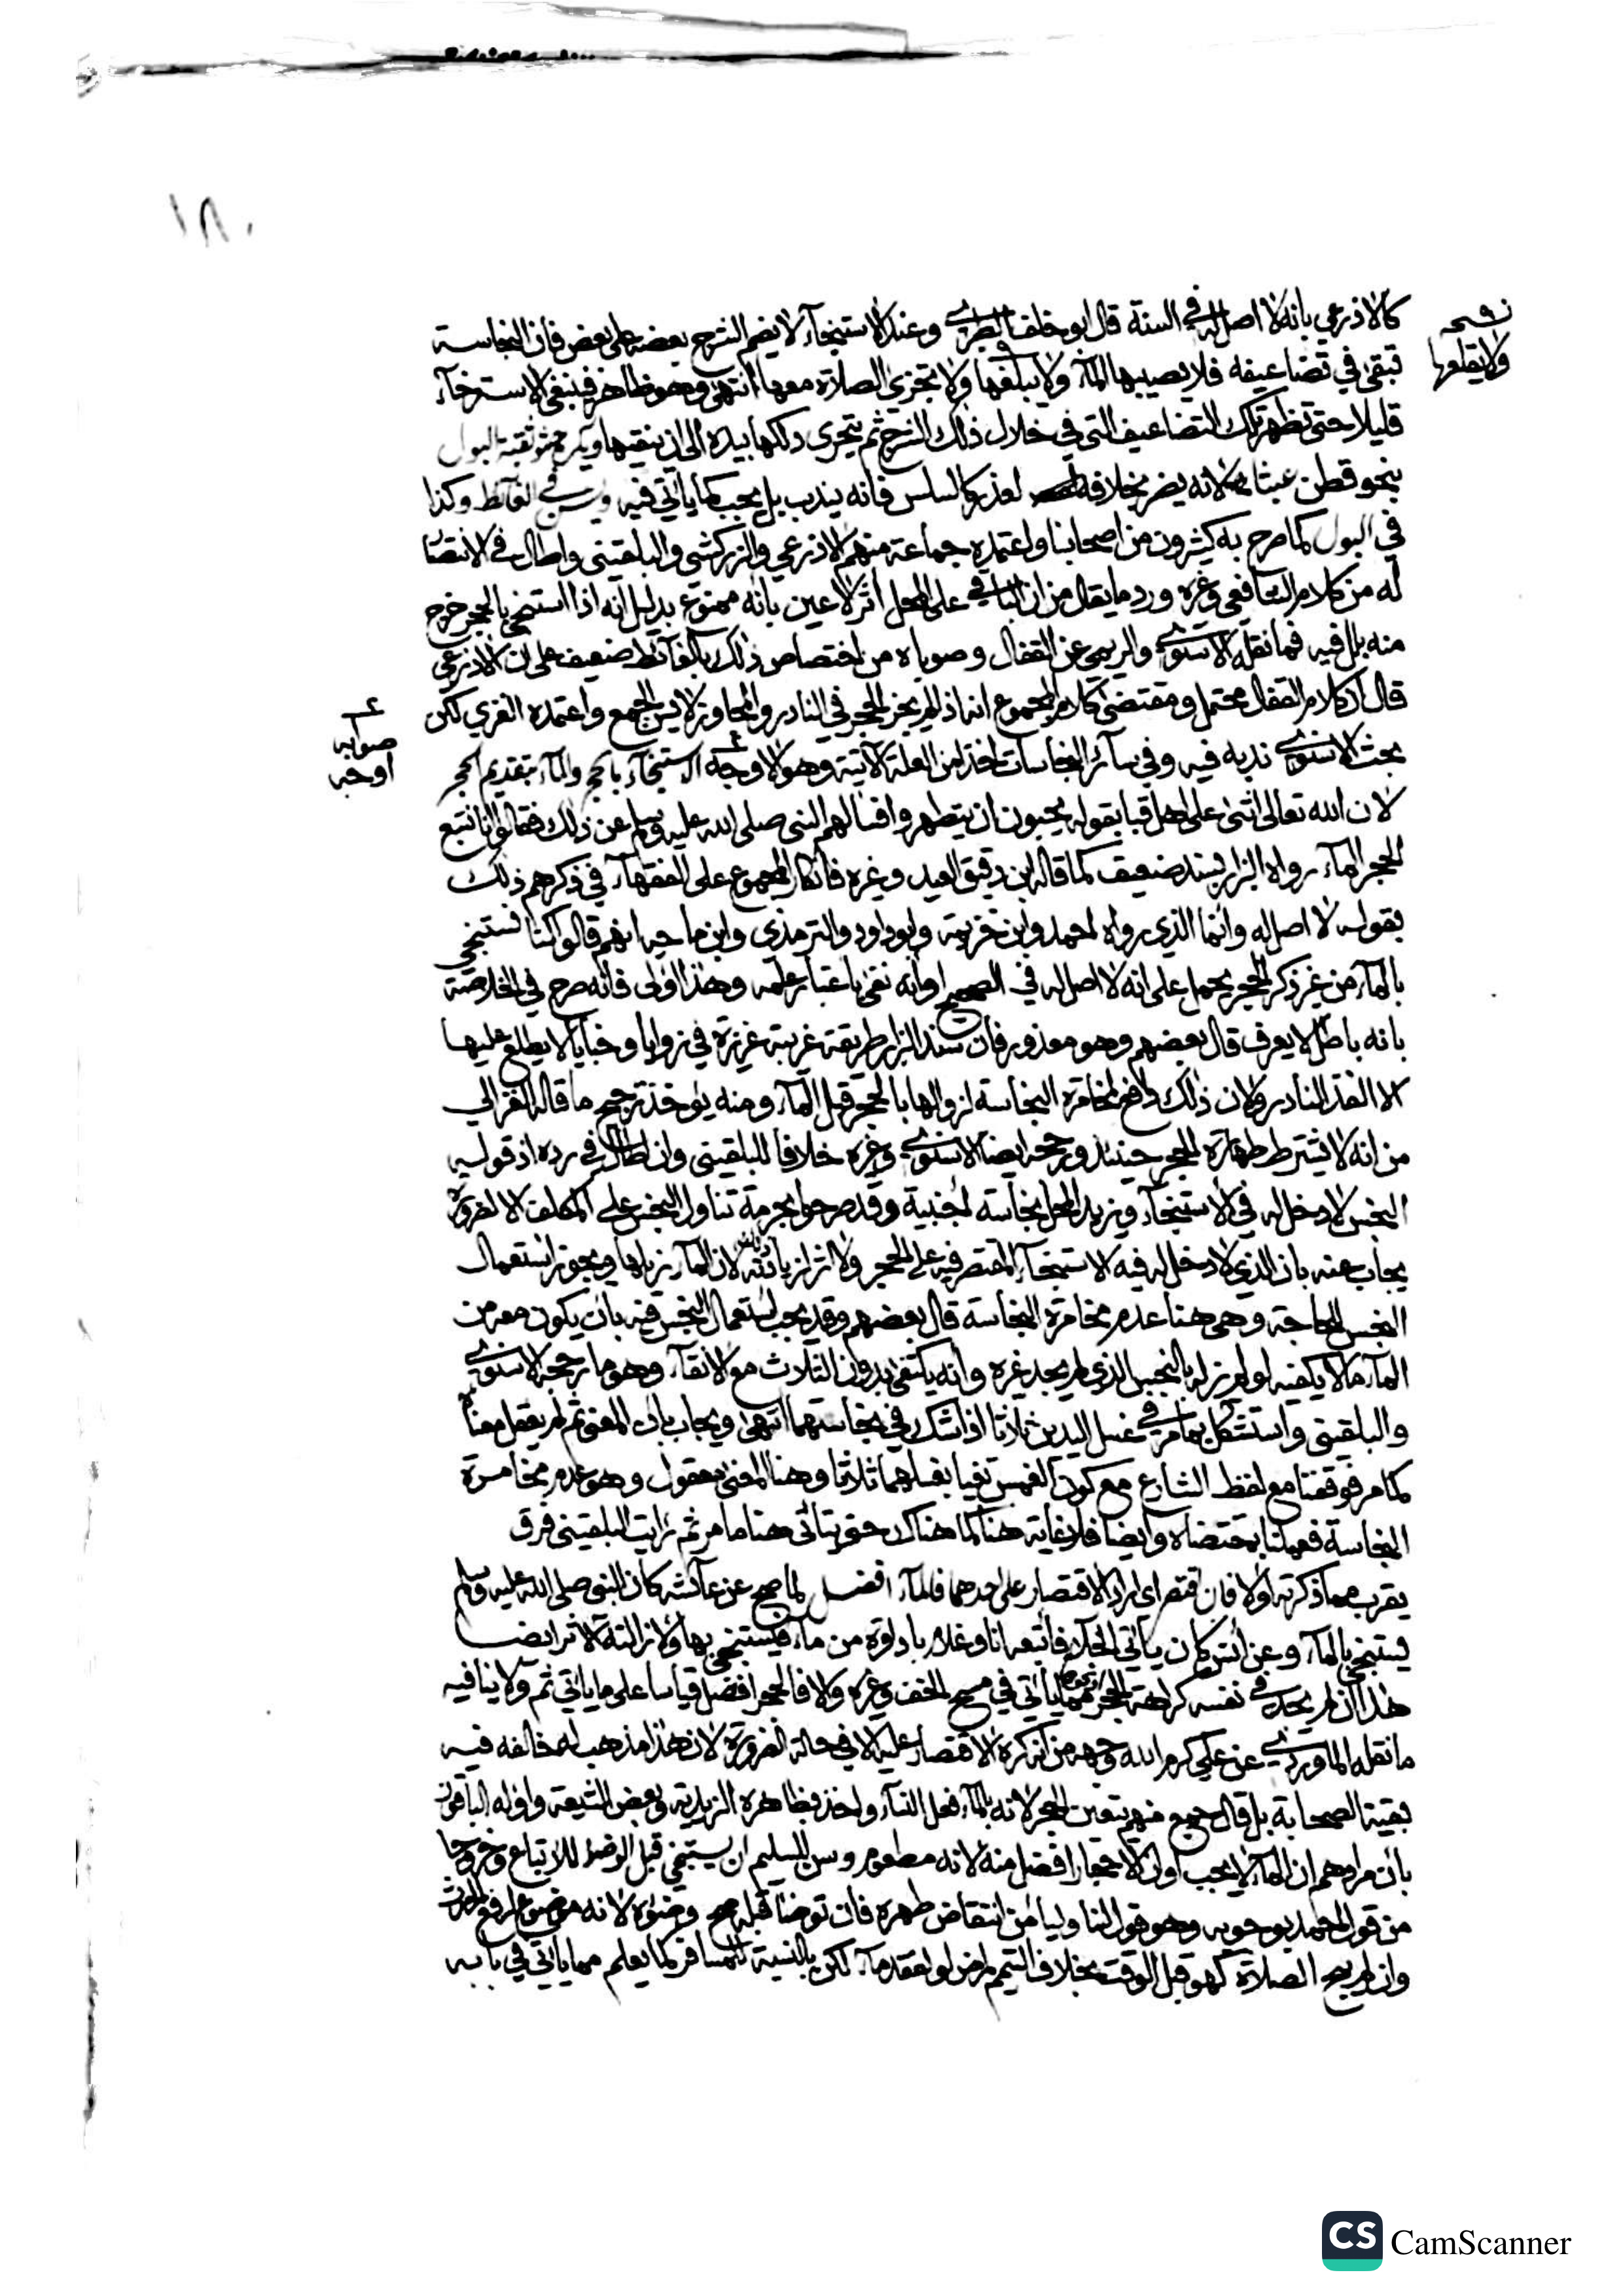 ١٨٠
كالاذرعي بانه لا اصل له في السنة قال ابو خلف الطبري وعند الاستنجاء لا يضم الشرج بعضه على بعض فان النجاسة
نسخه
ولا يقلعها
تبقى في تضاعيفه فلا يصيبها الماء ولا يبلغها ولا تجزى الصلاة معها انتهى وهو ظاهر فينبغي الاسترخاء
قليلا حتى تظهر تلك التضاعيف التي في خلال ذلك الشرج ثم يتحرى دلكها بيده الى ان ينقيها ويكره حشو ثقبة البول
بنحو قطن عبثا لانه يضر بخلافه لعذر كالسلس فانه يندب بل يجب كما ياتي فيه في الغائط وكذا
في البول كما صرح به كثيرون من اصحابنا واعتمده جماعة منهم الاذرعي والزركشي والبلقيني واطال في الانتصا
له من كلام الشافعي وغيره ورد ما يقال من ان الباقي على المحل اثر لا عين بانه ممنوع بدليل انه اذا استنجى بالحجر خرج
منه بلل فيه فما نقله الاسنوي والريمي عن القفال وصوباه من اختصاص ذلك بالغائط ضعيف على ان الاذرعي
قال ان كلام القفال محتمل ومقتضى كلام المجموع انه اذا لم يجز الحجر في النادر والمجاوز لا يسن الجمع واعتمده الغزي لكن
صوابه
اوجه
بحث الاسنوي ندبه فيه وفي سائر النجاسات اخذا من العلة الاتية وهو الاوجه الاستنجاء بالحجر والماء بتقديم الحجر
لان الله تعالى اثنى على اهل قبا بقوله يحبون ان يتطهروا فسالهم النبي صلى الله عليه وسلم عن ذلك فقالوا انا نتبع
الحجر الماء رواه البزار بسند ضعيف كما قاله ابن دقيق العيد وغيره فانكار المجموع على الفقهاء في ذكرهم ذلك
بقوله لا اصل له وانما الذي رواه احمد وابن خزيمة وابو داود والترمذي وابن ماجه انهم قالوا كنا نستنجي
بالماء من غير ذكر الحجر يحمل على انه لا اصل له في الصحيح او انه نفى باعتبار علمه وهذا اولى فانه صرح في الخلاصة
بانه باطل لا يعرف قال بعضهم وهو معذور فان سند البزار طريقة غريبة عزيزة في زوايا وخبايا لا يطلع عليها
الا الفذ النادر ولان ذلك دافع لمخامرة النجاسة لزوالها بالحجر قبل الماء ومنه يوخذ ترجيح ما قاله الغزالي
من انه لا يشترط طهارة الحجر حينئذ ورجحه ايضا الاسنوي وغيره خلافا للبلقيني وان اطال في رده اذ قوله
النجس لا دخل له في الاستنجاء ويزيد المحل نجاسة اجنبية وقد صرحوا بحرمة تناول النجس على المكلف الا لضرورة
يجاب عنه بان الذي لا دخل له فيه الاستنجاء المقتصر فيه على الحجر ولا اثر لزيادته لان الماء يزيلها ويجوز استعمال
النجس للحاجة وهي هنا عدم مخامرة النجاسة قال بعضهم وقد يجب استعمال النجس فيه بان يكون معه من
الماء ما لا يكفيه لو لم يزله بالنجس الذي لم يجد غيره وانه يكتفى بدون الثلاث مع الانقاء وهو ما رجحه الاسنوي
والبلقيني واستشكل بما مر في غسل اليدين ثلاثا اذا شك في نجاستهما انتهى ويجاب بان المعنى ثم لم يعقل معناه
كما مر فوقفنا مع لفظ الشارع مع كون الغمس نفيا بغسلهما ثلاثا وهنا المعنى معقول وهو عدم مخامرة
النجاسة فعملنا بمقتضاه وايضا فلا غاية هنا كما هناك حتى يتاتى هنا ما مر ثم رايت البلقيني فرق
يقرب مما ذكرته اولا فان اقتصر اي اراد الاقتصار على احدهما فالماء افضل لما صح عن عائشة كان النبي صلى الله عليه وسلم
يستنجي بالماء وعن انس كان ياتي الخلاء فاتبعه انا وغلام باداوة من ماء فيستنجي بها ولازالته الاثر ايضا
هذا ان لم يجد في نفسه كراهة الحجر مما ياتي في مسح الخف وغيره والا فالحجر افضل قياسا على ما ياتي ثم ولا ينافيه
ما نقله الماوردي عن علي كرم الله وجهه من انه كره الاقتصار عليه الا في حالة الضرورة لان هذا مذهب له خالفه فيه
بقية الصحابة بل قال جمع منهم يتعين الحجر لانه بالماء فعل النساء واخذ بظاهره الزيدية وبعض الشيعة واوله الباقون
بان مرادهم ان الماء لا يجب او ان الاحجار افضل منه لانه مطعوم وسن للسليم ان يستنجي قبل الوضوء للاتباع وخروجا
من قول احمد بوجوبه وهو قول لنا وليامن انتقاض طهره فان توضا قبله صح وضوءه لانه موضوع لرفع الحدث
وان لم يبح الصلاة كهو قبل الوقت بخلاف التيمم لمرض او لفقد ماء لكن بالنسبة للمسافر كما يعلم مما ياتي في بابه
CS CamScanner